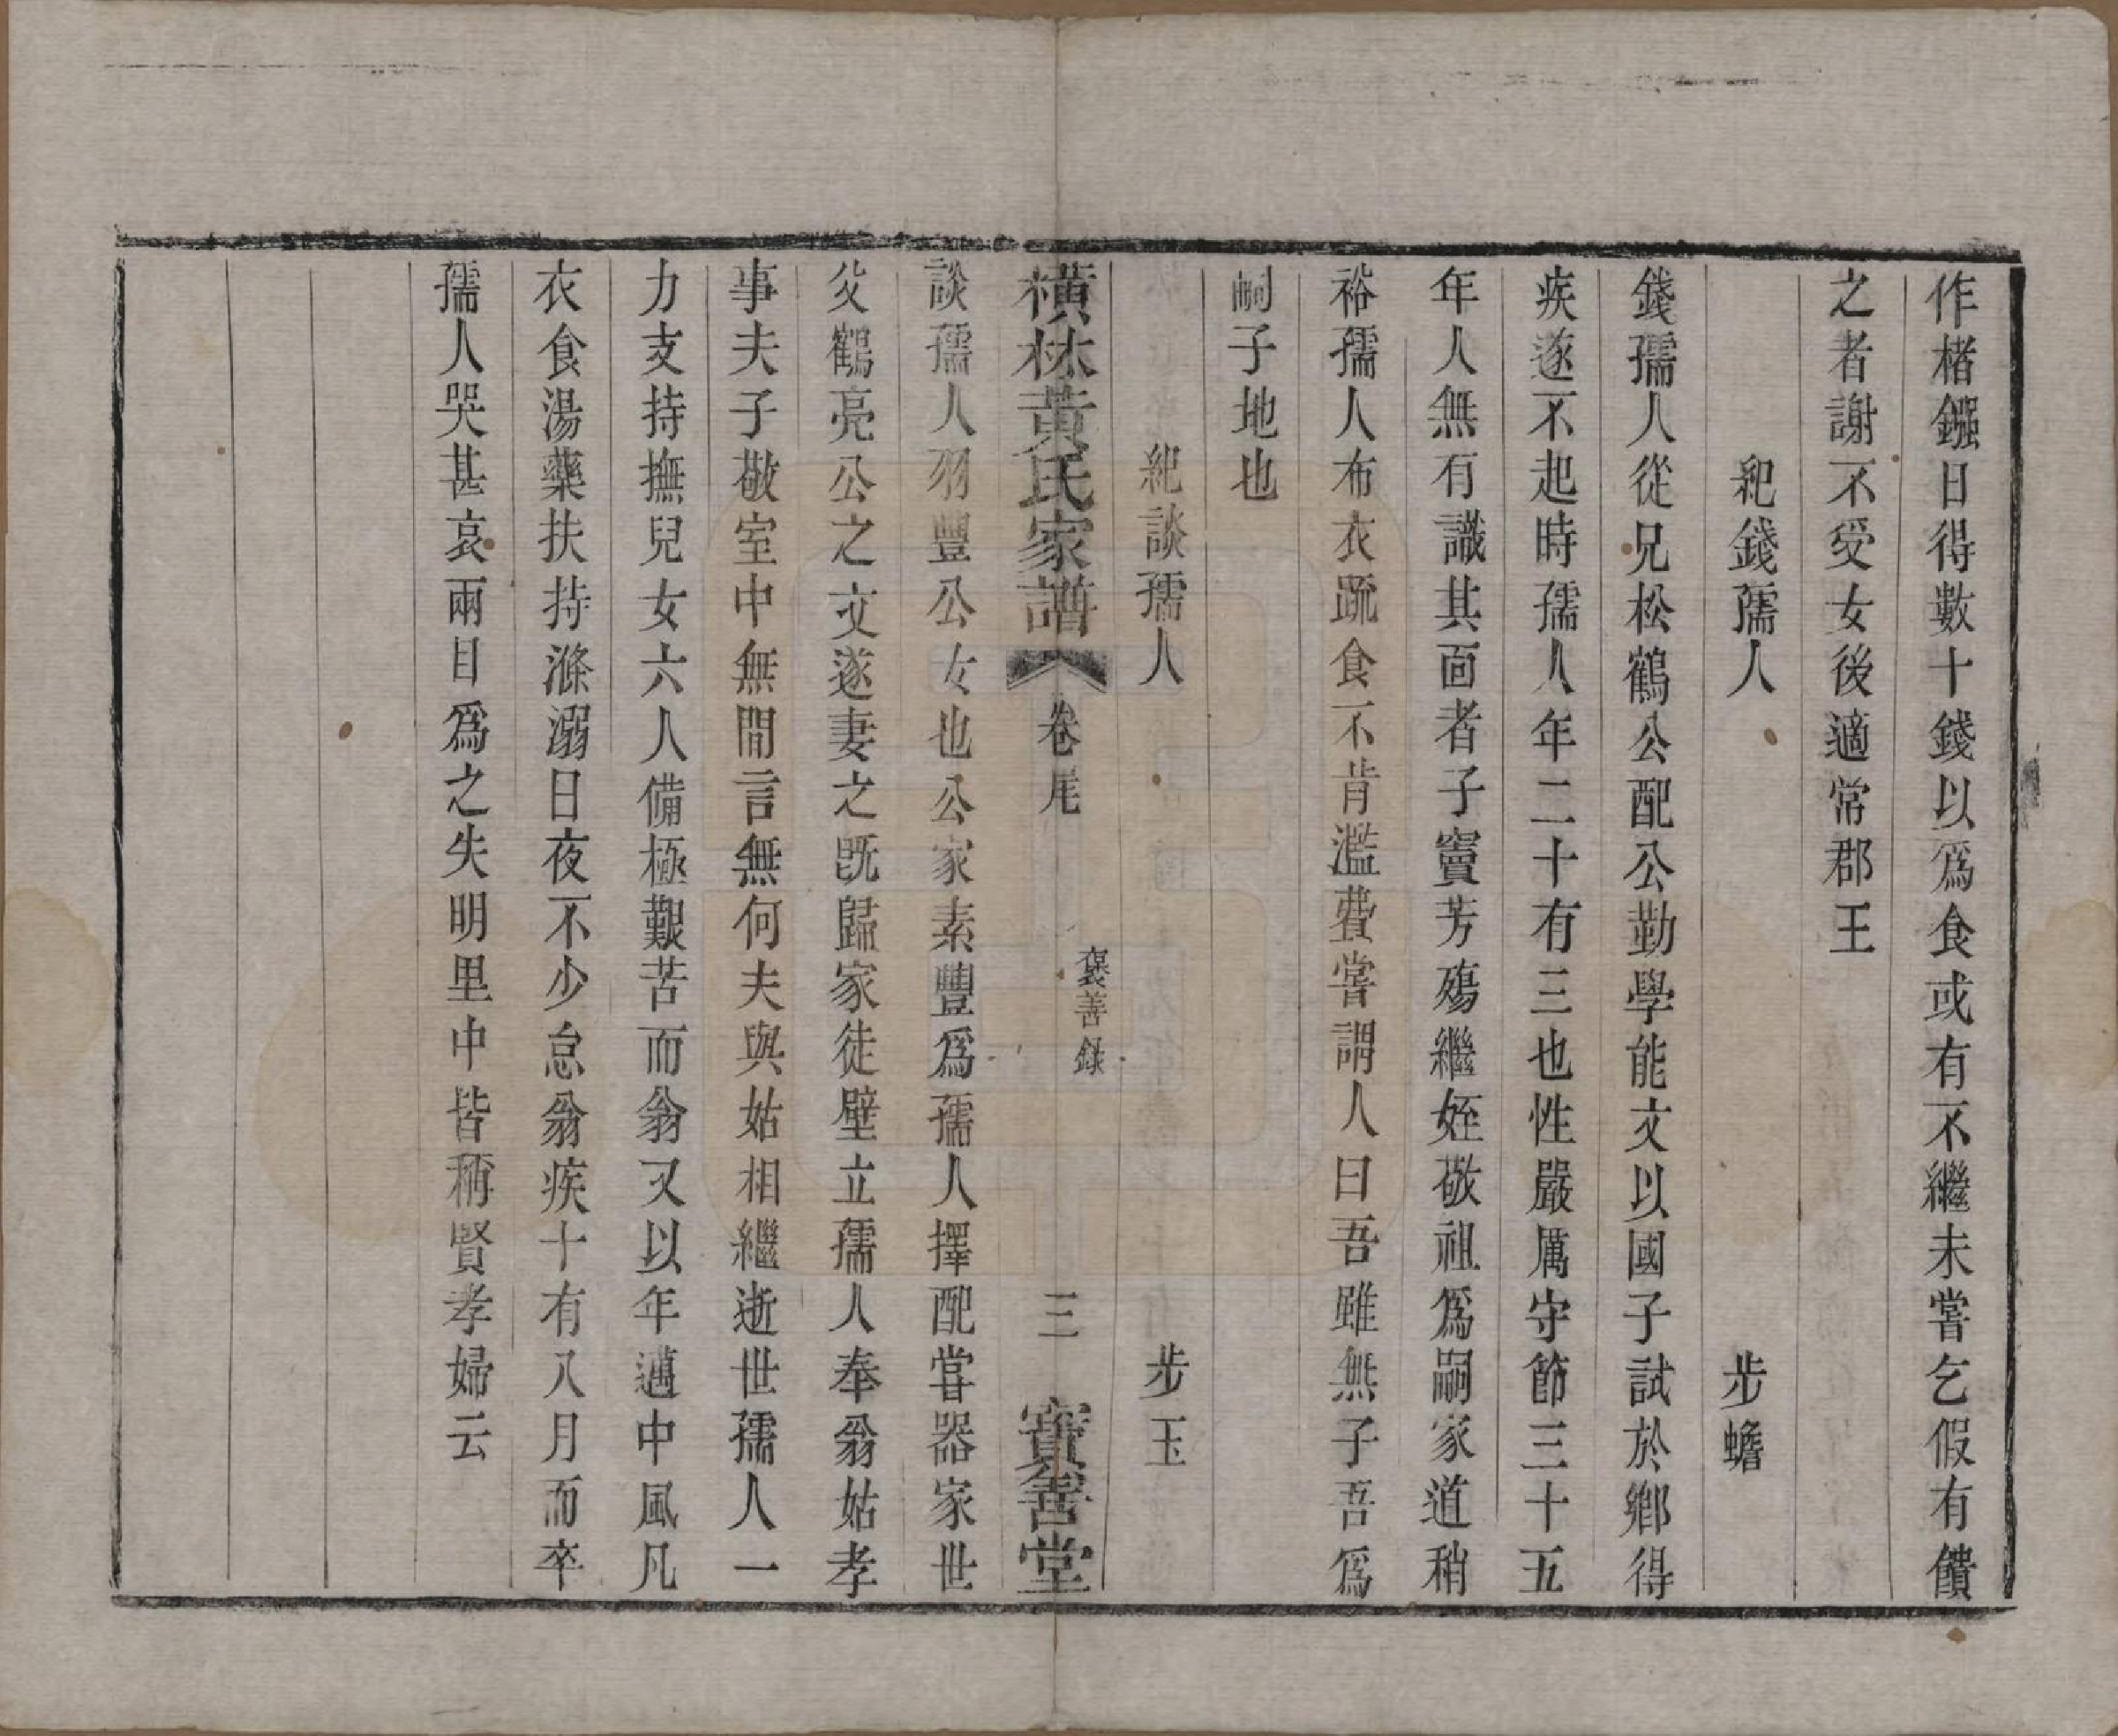 作楮鏹日得數十錢以爲食或有不繼未嘗乞假有饋
之者謝不受女後適常郡王
紀錢孺人 步蟾
錢孺人從兄松鶴公配公勤學能文以國子試於鄉得
疾遂不起時孺人年二十有三也性嚴厲守節三十五
年人無有識其面者子竇芳殤繼姪敬祖爲嗣家道稍
裕孺人布衣蔬食不肯濫費嘗謂人曰吾雖無子吾爲
嗣子地也
紀談孺人 步玉
橫林黃氏家譜 卷尾 褒善錄 三 寶善堂
談孺人羽豐公女也公家素豐爲孺人擇配甞器家世
父鶴亮公之文遂妻之既歸家徒壁立孺人奉翁姑孝
事夫子敬室中無間言無何夫與姑相繼逝世孺人一
力支持撫兒女六人備極艱苦而翁又以年邁中風凡
衣食湯藥扶持滌溺日夜不少怠翁疾十有八月而卒
孺人哭甚哀兩目爲之失明里中皆稱賢孝婦云